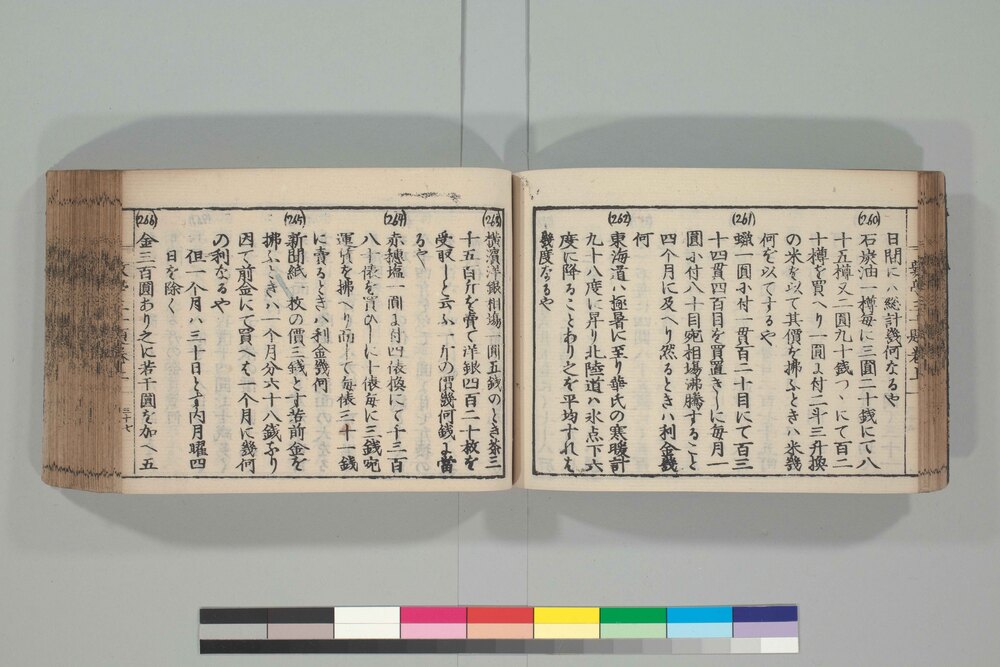 日間にハ総計幾何なるや
(260)
石炭油一樽毎に三圓二十銭にて八
十五樽又二圓九十銭つゝにて百二
十樽を買へり一圓に付二斗三升換
の米を以て其價を拂ふときハ米幾
何を以てするや
(261)
蝋一圓に付一貫百二十目にて百三
十四貫四百目を買置きしに毎月一
圓に付八十目宛相場沸騰すること
四个月に及へり然るときハ利金幾
何
(262)
東海道ハ極暑に至り華氏の寒暖計
九十八度に昇り北陸道ハ氷点下六
度に降ることあり之を平均すれは
幾度なるや
(263)
横濱洋銀相塲一圓五銭のとき茶三
千五百斤を賣て洋銀四百二十枚を
受取しと云ふ一斤の價幾何銭に當
るや
(264)
赤穂塩一圓に付四俵換にて千三百
八十俵を買ひしに十俵毎に三銭宛
運賃を拂へり而して毎俵三十一銭
に賣るときハ利金幾何
(265)
新聞紙一枚の價三銭とす若前金を
拂ふときハ一个月分六十八銭なり
因て前金にて買へは一个月に幾何
の利なるや
但一个月ハ三十日とし内月曜四
日を除く
(266)
金三百圓あり之に若干圓を加へ五
三十七